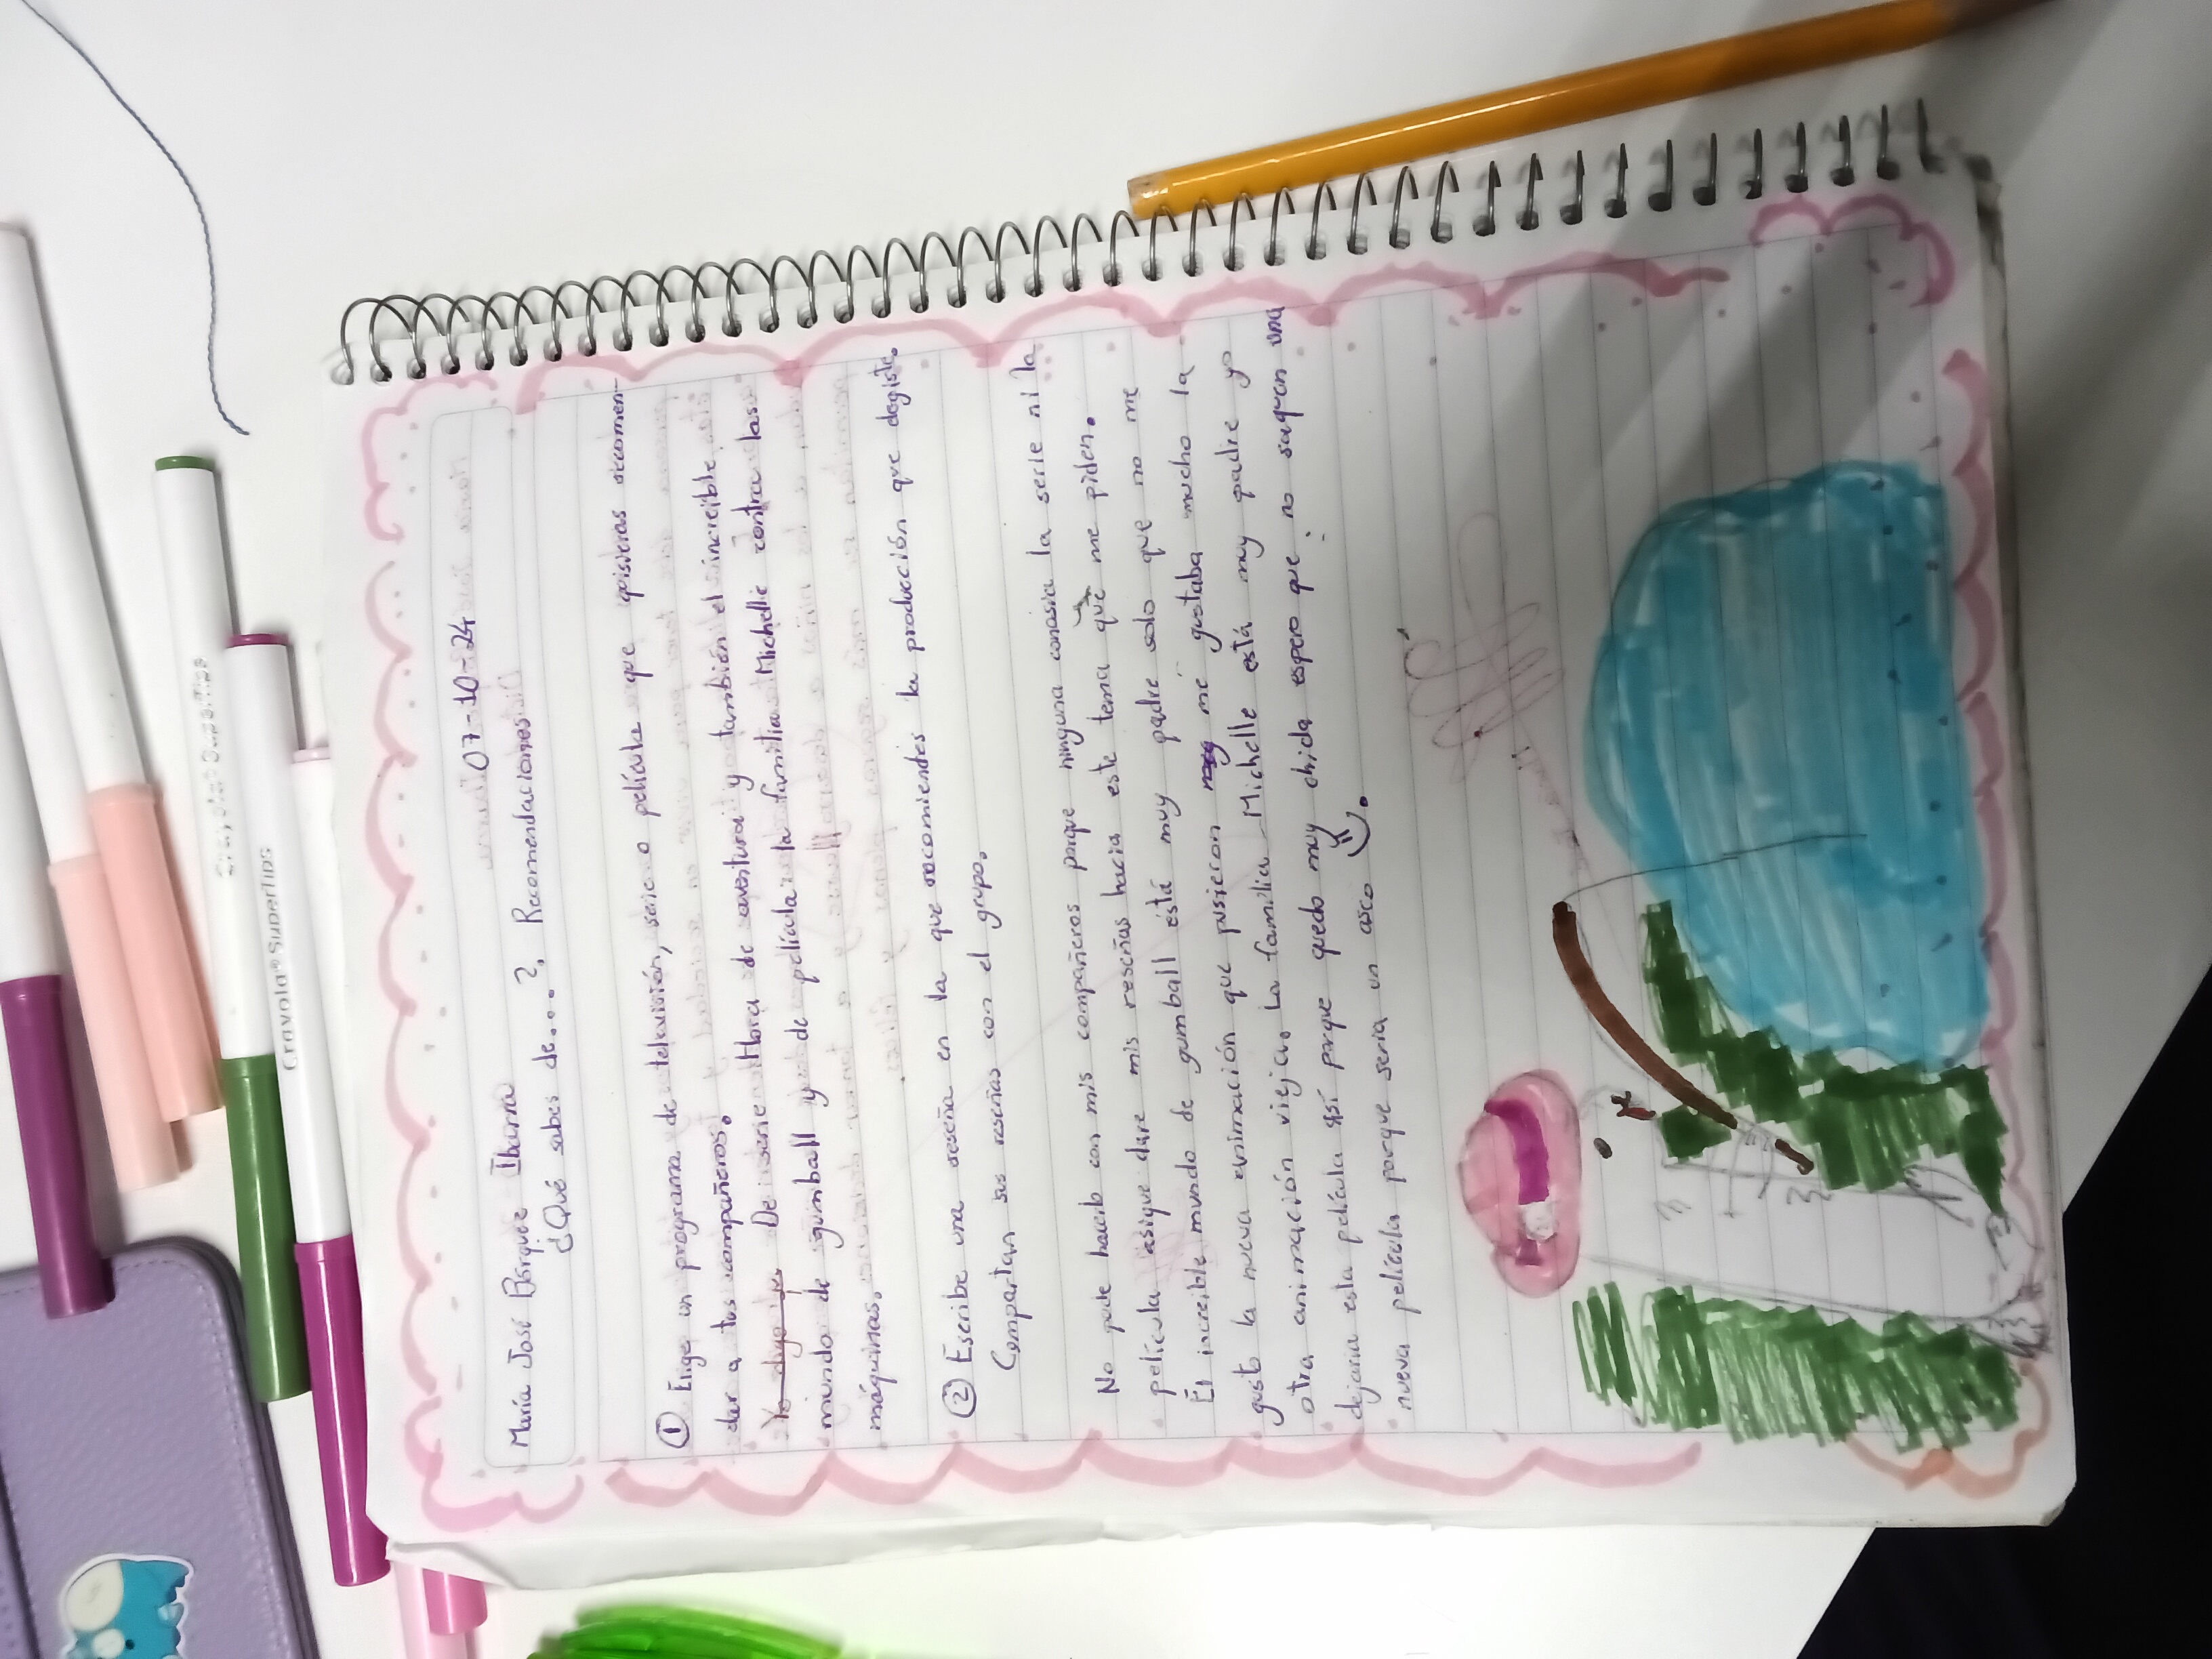 07-10-24
María José Bórquez Ibarra
¿Qué sabes de....?, Recomendaciones
① Elige un programa de televisión, serie o película que quisieras recomen-
dar a tus compañeros.
Yo digo que De serie Hora de aventura y también el increible
mundo de gumball y de película la familia Michelle contra las
máquinas.
② Escribe una reseña en la que recomiendes la producción que elegiste.
Compartan sus reseñas con el grupo.
No pude hacerlo con mis compañeros porque ninguna conosia la serie ni la
película asique dare mis reseñas hacia este tema que me piden.
El increible mundo de gumball está muy padre solo que no me
gusto la nueva animación que pusieron me gustaba mucho la
otra animación vieja, La familia Michelle está muy padre yo
dejaria esta película así porque quedo muy chida espero que no saquen una
nueva película porque seria un asco.
Crayola® SuperTips
Crayola® SuperTips